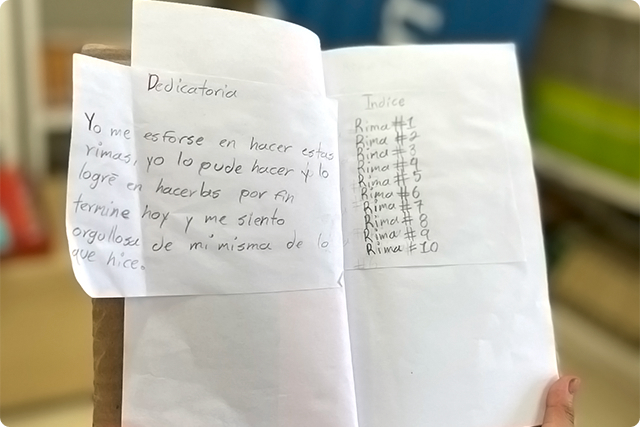 Dedicatoria
Yo me esforse en hacer estas
rimas, yo lo pude hacer y lo
logré en hacerlas por fin
termine hoy y me siento
orgullosa de mi misma de lo
que hice.
Indice
Rima #1
Rima #2
Rima #3
Rima #4
Rima #5
Rima #6
Rima #7
Rima #8
Rima #9
Rima #10